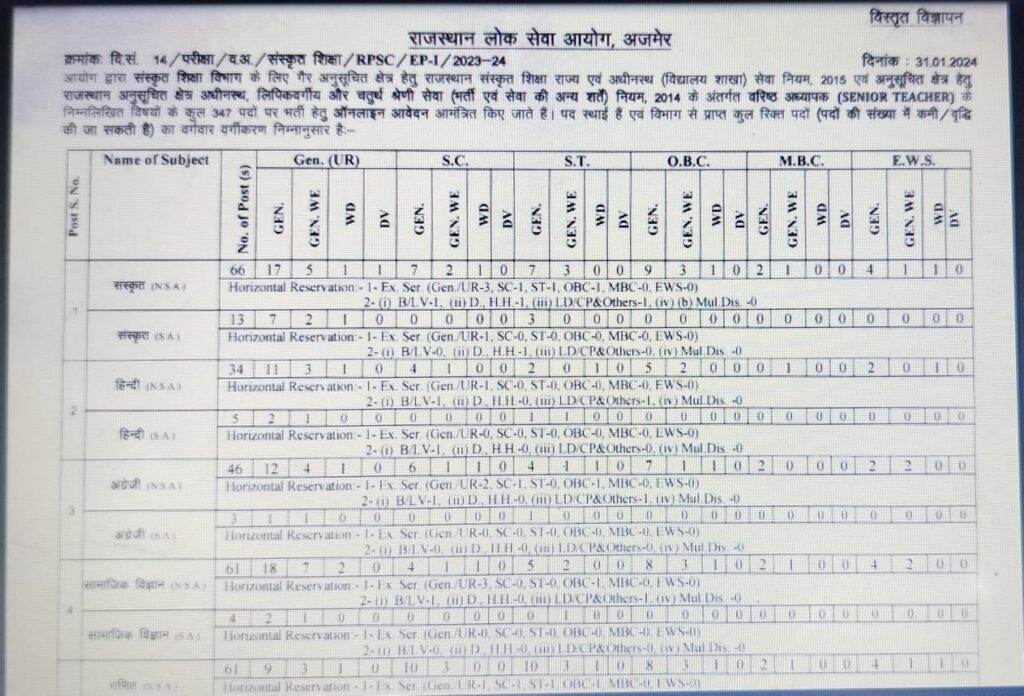 विस्तृत विज्ञापन
राजस्थान लोक सेवा आयोग, अजमेर
क्रमांक: वि.सं. 14/परीक्षा/व.अ./संस्कृत शिक्षा/RPSC/EP-I/2023-24 दिनांक : 31.01.2024
आयोग द्वारा संस्कृत शिक्षा विभाग के लिए गैर अनुसूचित क्षेत्र हेतु राजस्थान संस्कृत शिक्षा राज्य एवं अधीनस्थ (विद्यालय शाखा) सेवा नियम, 2015 एवं अनुसूचित क्षेत्र हेतु
राजस्थान अनुसूचित क्षेत्र अधीनस्थ, लिपिकवर्गीय और चतुर्थ श्रेणी सेवा (भर्ती एवं सेवा की अन्य शर्तें) नियम, 2014 के अंतर्गत वरिष्ठ अध्यापक (SENIOR TEACHER) के
निम्नलिखित विषयों के कुल 347 पदों पर भर्ती हेतु ऑनलाइन आवेदन आमंत्रित किए जाते है। पद स्थाई हैं एवं विभाग से प्राप्त कुल रिक्त पदों (पदों की संख्या में कमी/वृद्धि
की जा सकती है) का वर्गवार वर्गीकरण निम्नानुसार है:-
Post S. No. Name of Subject No. of Post (s) Gen. (UR) S.C. S.T. O.B.C. M.B.C. E.W.S.
GEN. GEN. WE WD DV GEN. GEN. WE WD DV GEN. GEN. WE WD DV GEN. GEN. WE WD DV GEN. GEN. WE WD DV GEN. GEN. WE WD DV
66 17 5 1 1 7 2 1 0 7 3 0 0 9 3 1 0 2 1 0 0 4 1 1 0
1 संस्कृत (N.S.A.) Horizontal Reservation:- 1- Ex. Ser. (Gen./UR-3, SC-1, ST-1, OBC-1, MBC-0, EWS-0)
2- (i) B/LV-1, (ii) D., H.H.-1, (iii) LD/CP&Others-1, (iv) (b) Mul.Dis. -0
13 7 2 1 0 0 0 0 0 3 0 0 0 0 0 0 0 0 0 0 0 0 0 0 0
संस्कृत (S.A.) Horizontal Reservation:- 1- Ex. Ser. (Gen./UR-1, SC-0, ST-0, OBC-0, MBC-0, EWS-0)
2- (i) B/LV-0, (ii) D., H.H.-1, (iii) LD/CP&Others-0, (iv) Mul.Dis. -0
34 11 3 1 0 4 1 0 0 2 0 1 0 5 2 0 0 0 1 0 0 2 0 1 0
2 हिन्दी (N.S.A.) Horizontal Reservation:- 1- Ex. Ser. (Gen./UR-1, SC-0, ST-0, OBC-1, MBC-0, EWS-0)
2- (i) B/LV-1, (ii) D., H.H.-0, (iii) LD/CP&Others-1, (iv) Mul.Dis. -0
5 2 1 0 0 0 0 0 0 1 1 0 0 0 0 0 0 0 0 0 0 0 0 0 0
हिन्दी (S.A.) Horizontal Reservation:- 1- Ex. Ser. (Gen./UR-0, SC-0, ST-0, OBC-0, MBC-0, EWS-0)
2- (i) B/LV-1, (ii) D., H.H.-0, (iii) LD/CP&Others-0, (iv) Mul.Dis. -0
46 12 4 1 0 6 1 1 0 4 1 1 0 7 1 1 0 2 0 0 0 2 2 0 0
3 अंग्रेजी (N.S.A.) Horizontal Reservation:- 1- Ex. Ser. (Gen./UR-2, SC-1, ST-0, OBC-1, MBC-0, EWS-0)
2- (i) B/LV-1, (ii) D., H.H.-0, (iii) LD/CP&Others-1, (iv) Mul.Dis. -0
3 1 1 0 0 0 0 0 0 1 0 0 0 0 0 0 0 0 0 0 0 0 0 0 0
अंग्रेजी (S.A.) Horizontal Reservation:- 1- Ex. Ser. (Gen./UR-0, SC-0, ST-0, OBC-0, MBC-0, EWS-0)
2- (i) B/LV-0, (ii) D., H.H.-0, (iii) LD/CP&Others-0, (iv) Mul.Dis. -0
61 18 7 2 0 4 1 1 0 5 2 0 0 8 3 1 0 2 1 0 0 4 2 0 0
4 सामाजिक विज्ञान (N.S.A.) Horizontal Reservation:- 1- Ex. Ser. (Gen./UR-3, SC-0, ST-0, OBC-1, MBC-0, EWS-0)
2- (i) B/LV-1, (ii) D., H.H.-0, (iii) LD/CP&Others-1, (iv) Mul.Dis. -0
4 2 1 0 0 0 0 0 0 0 1 0 0 0 0 0 0 0 0 0 0 0 0. 0 0
सामाजिक विज्ञान (S.A.) Horizontal Reservation:- 1- Ex. Ser. (Gen./UR-0, SC-0, ST-0, OBC-0, MBC-0, EWS-0)
2- (i) B/LV-0, (ii) D., H.H.-0, (iii) LD/CP&Others-0, (iv) Mul.Dis. -0
61 9 3 1 0 10 3 0 0 10 3 1 0 8 3 1 0 2 1 0 0 4 1 1 0
गणित (N.S.A.) Horizontal Reservation:- 1- Ex. Ser. (Gen./UR-1, SC-1, ST-1, OBC-1, MBC-0, EWS-0)